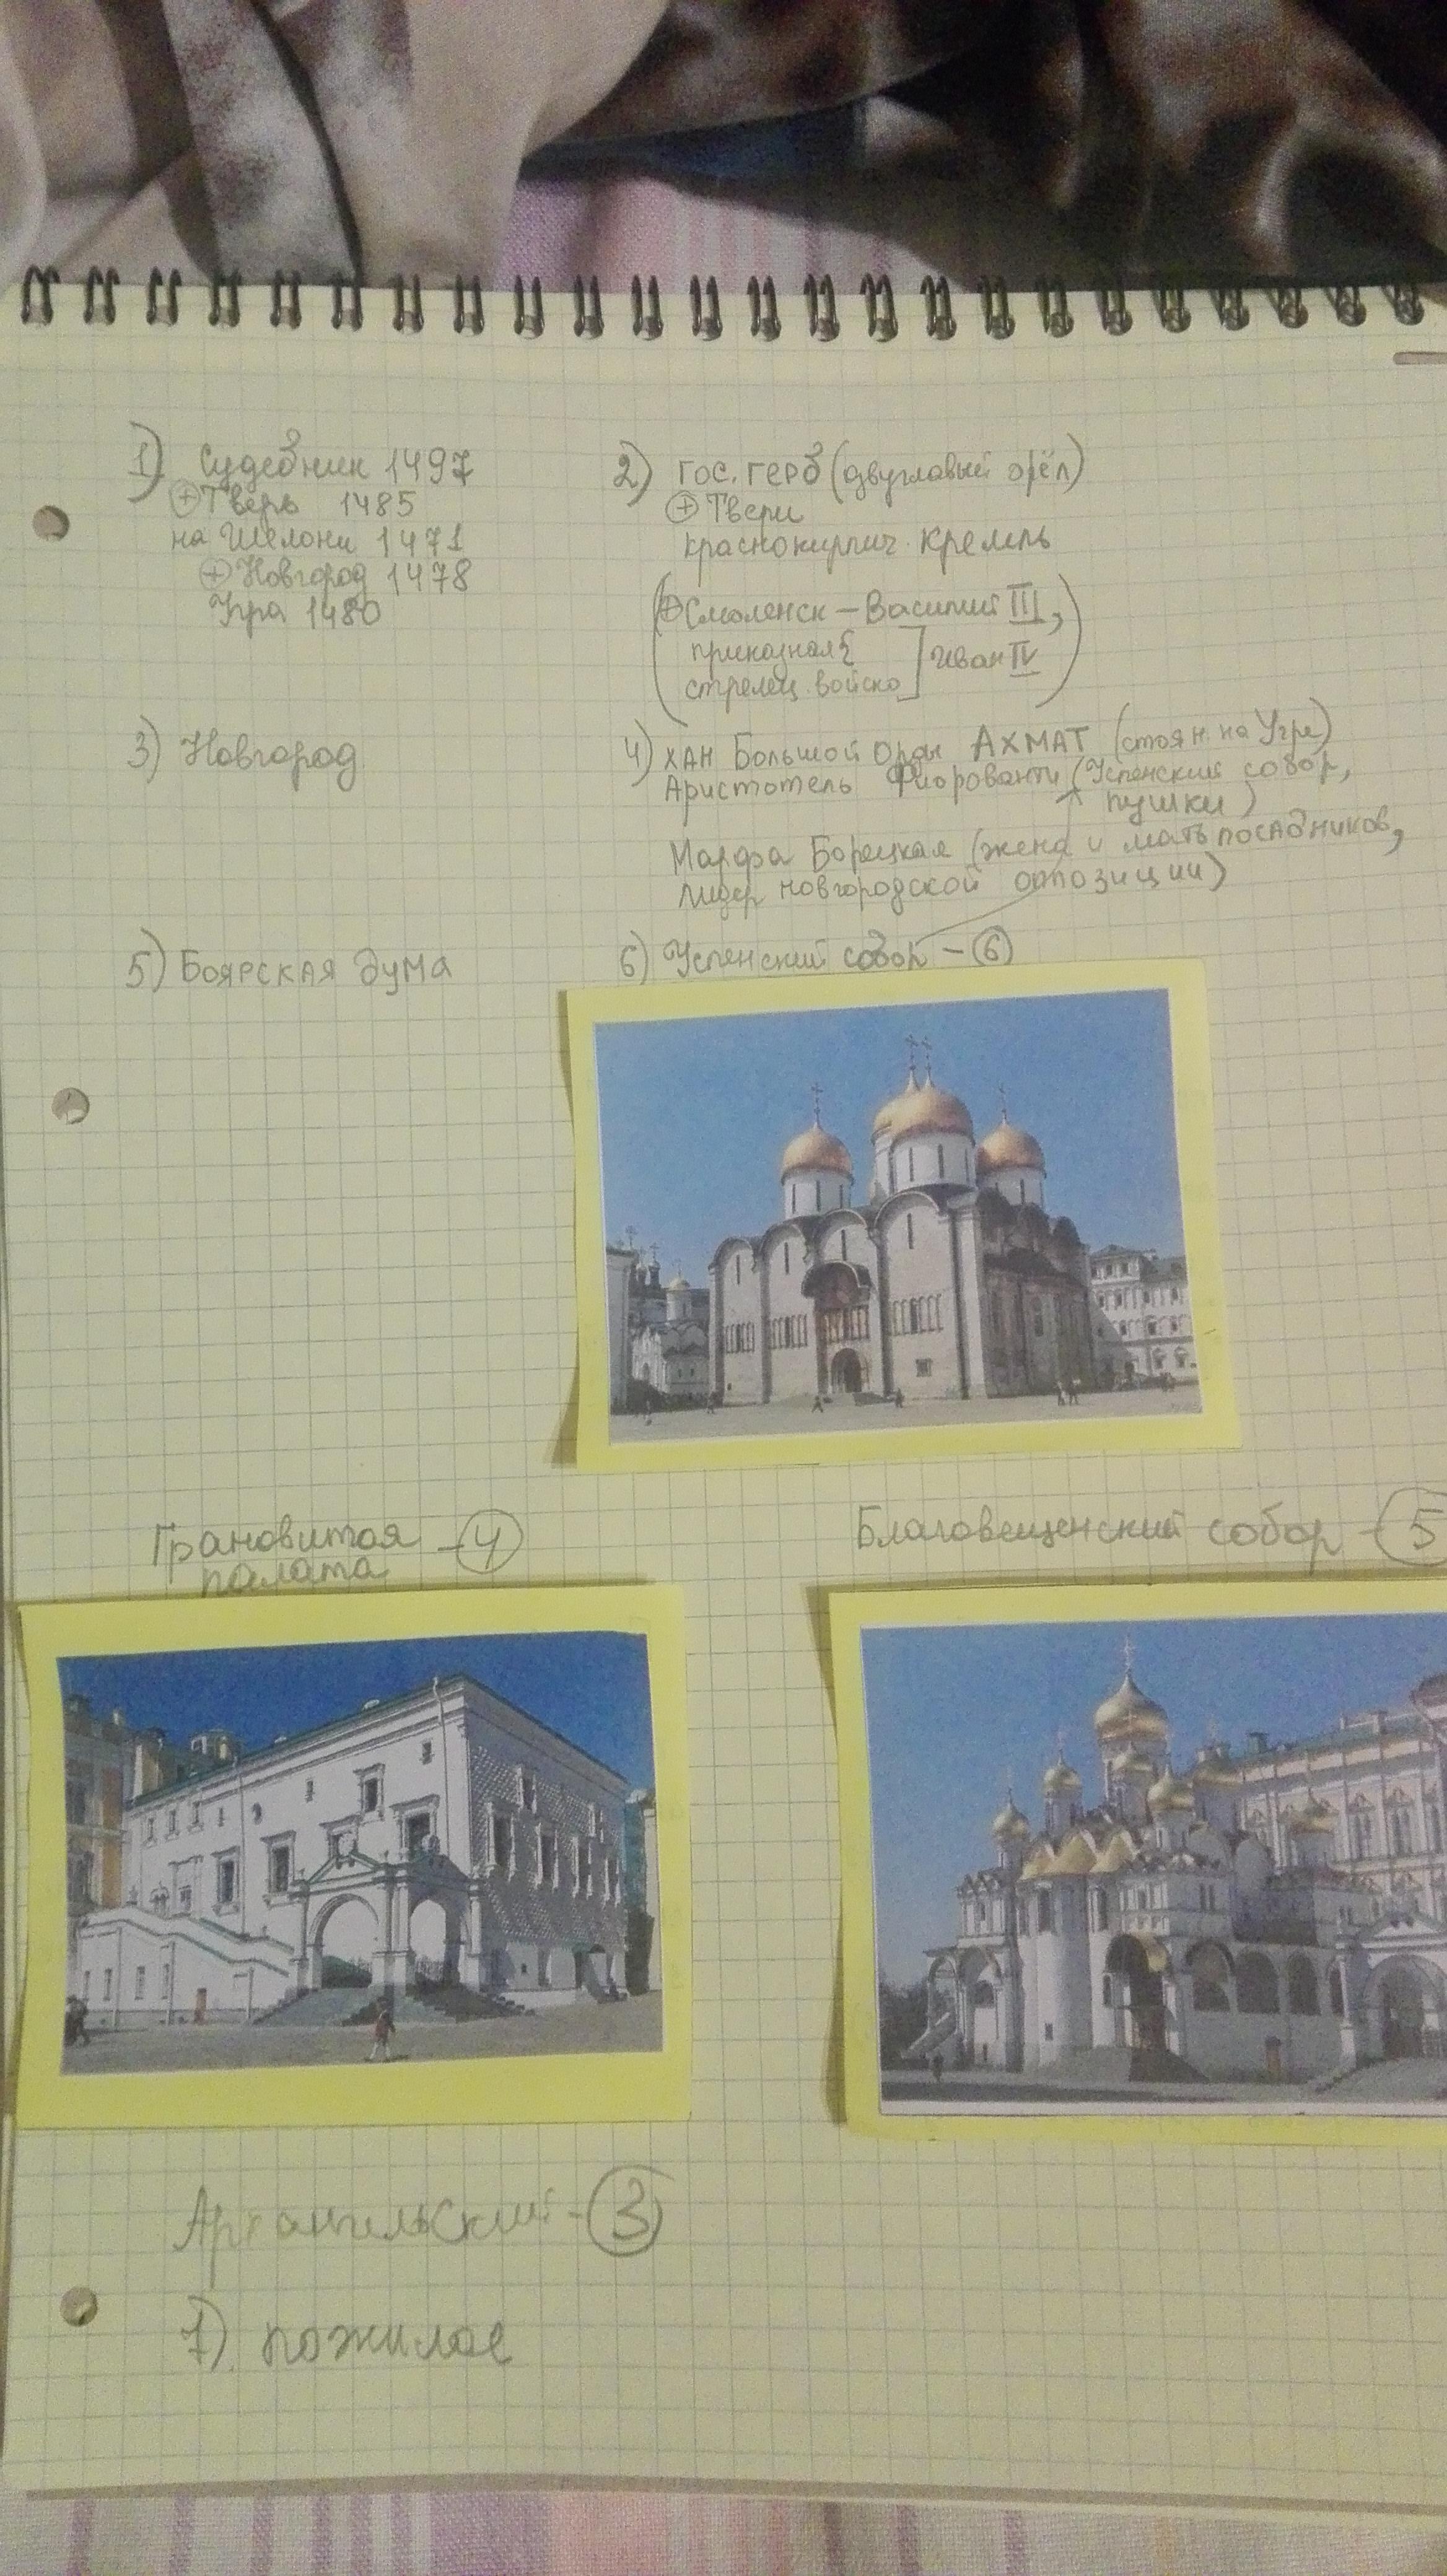 1) Судебник 1497
⊕ Тверь 1485
на Шелони 1471
⊕ Новгород 1478
Угра 1480
2) гос. герб (двуглавый орёл)
⊕ Твери
краснокирпич. Кремль
(⊕ Смоленск – Василий III,
приказная {
стрелец. войско ] Иван IV )
3) Новгород
4) хан Большой Орды АХМАТ (стоян. на Угре)
Аристотель Фиорованти (Успенский собор,
пушки)
Марфа Борецкая (жена и мать посадников,
лидер новгородской оппозиции)
5) Боярская дума
6) Успенский собор – 6
Грановитая – 4
палата
Благовещенский собор – 5
Архангельский – 3
7) пожилое